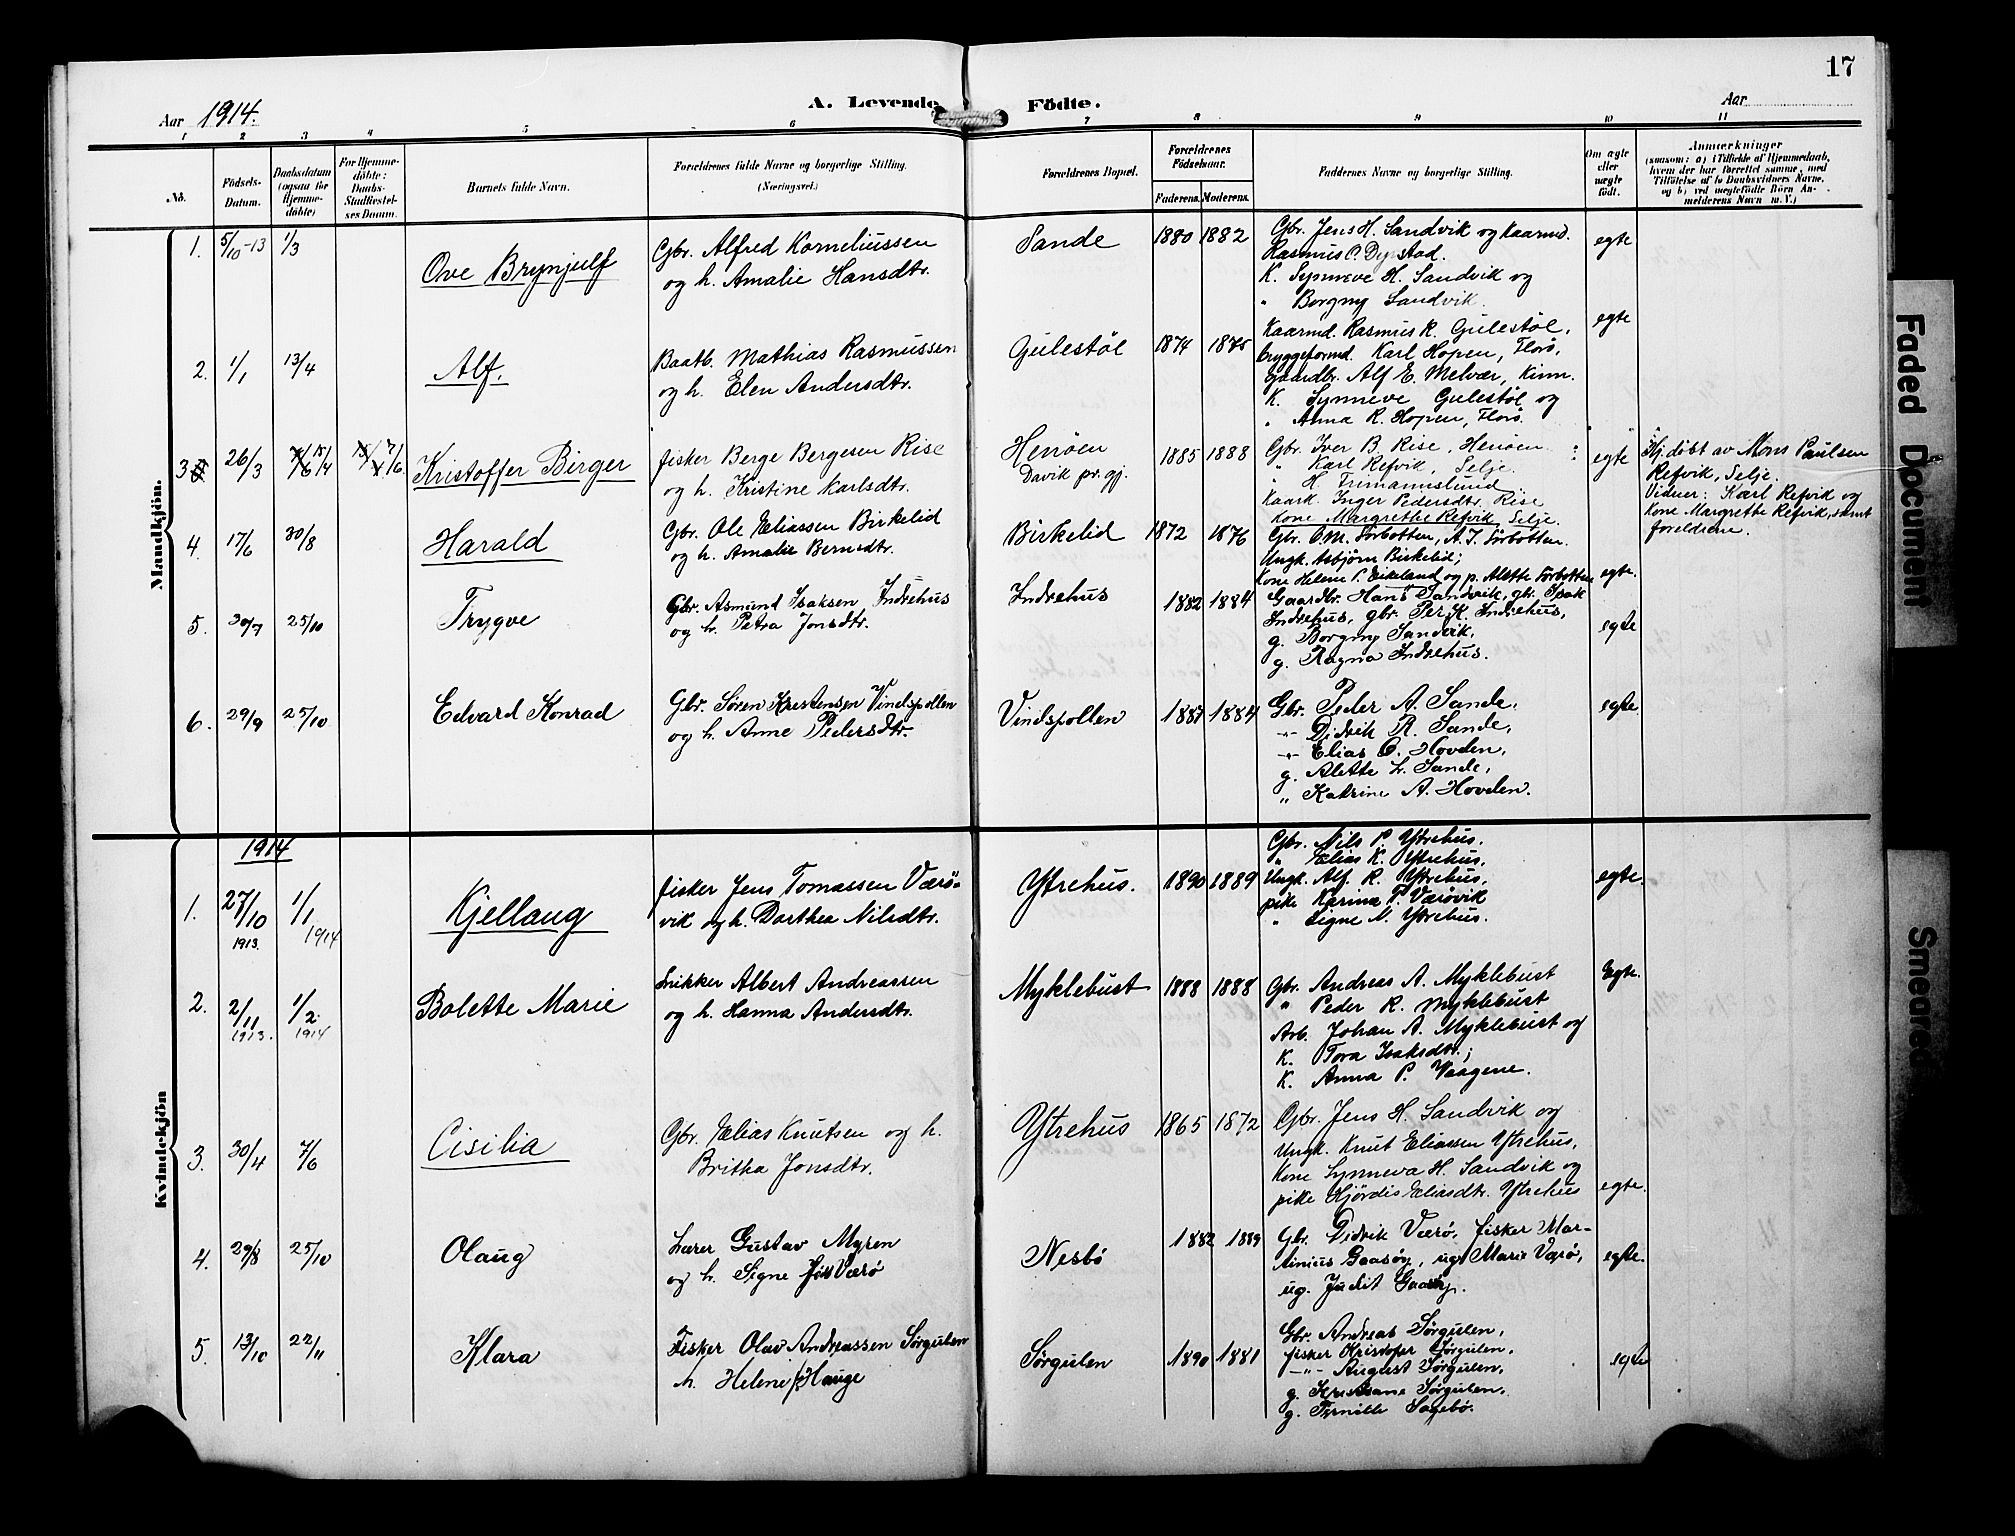 17
Aar 1914.
A. Levende Födte.
Aar
1 2 3 4 5 6 7 8 9 10 11
No.
Födsels-Datum.
Daabsdatum (ogsaa for Hjemme-döbte)
For Hjemme-döbte: Daabs-Stadfæstel-ses Datum.
Barnets fulde Navn.
Forældrenes fulde Navne og borgerlige Stilling. (Næringsvei.)
Forældrenes Bopæl.
Forældrenes Födselsaar.
Faderens. Moderens.
Faddernes Navne og borgerlige Stilling.
Om ægte eller uægte født.
Anmærkninger
(saasom: a) i Tilfælde af Hjemmedaab, hvem der har forrettet samme, med Tilföielse af to Daabsvidners Navne, og b) ved uægtefödte Börn An-melderens Navn m. V.)
Mandkjön.
1. 5/10-13 1/3
Ove Brynjulf
Gbr. Alfred Korneliussen
og h. Amalie Hansdtr.
Sande 1880 1882
Gbr. Jens H. Sandvik og kaarmd.
Rasmus O. Dyrstad.
K. Synneve H. Sandvik og
" Borgny Sandvik.
egte
2. 1/1 13/4
Alf.
Baatb. Mathias Rasmussen
og h. Elen Andersdtr.
Gulestöl 1874 1875
Kaarmd. Rasmus R. Gulestöl,
bryggeformd. Karl Hopen, Florö,
gaardbr. Alf E. Melvær, Kinn.
K. Synneve Gulestöl og
" Anna R. Hopen, Florö.
egte
3 26/3 15/4 7/6
Kristoffer Birger
fisker Berge Bergesen Rise
og h. Kristine Karlsdtr.
Henöen
Davik pr.gj.
1885 1888
Gbr. Iver B. Rise, Henöen
" Karl Refvik, Selje.
" H. Frimannslund
Kaark. Inger Pedersdtr. Rise
Kone Margrethe Refvik, Selje.
egte
Hj.döbt av Mons Paulsen
Refvik, Selje.
Vidner: Karl Refvik og
Kone Margrethe Refvik, samt
foreldrene.
4. 17/6 30/8
Harald
Gbr. Ole Eliassen Birkelid
og h. Amalie Berntdtr.
Birkelid 1872 1876
Gbr. O.M. Förbotten, A.I. Förbotten.
Ungk. Asbjörn Birkelid;
Kone Helene P. Eikeland og p. Alette Förbotten
egte.
5. 30/7 25/10
Trygve
Gbr. Asmund Isaksen Indrehus
og h. Petra Jonsdtr.
Indrehus 1882 1884
Gaardbr. Hans Sandvik, gbr. Isak
Indrehus, gbr. Per K. Indrehus,
g. Borgny Sandvik,
g. Ragna Indrehus.
egte
6. 29/9 25/10
Edvard Konrad
Gbr. Sören Kristensen Vindspollen
og h. Anne Pedersdtr.
Vindspollen 1887 1884
Gbr. Peder A. Sande,
-"- Didrik R. Sande,
-"- Elias O. Hovden,
g. Alette L. Sande,
" Katrine A. Hovden.
egte.
Kvindekjön
1914
1. 27/10 1913. 1/1 1914
Kjellaug
fisker Jens Tomassen Værö-
vik og h. Dorthea Nilsdtr.
Ytrehus. 1890 1889
Gbr. Nils P. Ytrehus.
" Elias K. Ytrehus.
Ungk. Alf. R. Ytrehus,
pike Karina T. Værövik
" Signe N. Ytrehus.
egte.
2. 2/11 1913. 1/2 1914
Bolette Marie
Snikker Albert Andreassen
og h. Hanna Andersdtr.
Myklebust 1888 1888
Gbr. Andreas A. Myklebust
" Peder R. Myklebust
Arb. Johan A. Myklebust og
K. Tora Isaksdtr.;
K. Anna P. Vaagene.
Egte.
3. 30/4 7/6
Cisilia
Gbr. Elias Knutsen og h.
Britha Jonsdtr.
Ytrehus 1865 1872
Gbr. Jens H. Sandvik og
Ungk. Knut Eliassen Ytrehus,
Kone Synneva H. Sandvik og
pike Hjördis Eliasdtr. Ytrehus
egte.
4. 29/8 25/10
Olaug
Lærer Gustav Myren
og h. Signe Værö
Nesbö 1882 1889
Gbr. Didrik Værö, fisker Mar-
tinius Gaasöy, ug. Marie Værö,
ug. Judit Gaasöy.
egte.
5. 13/10 22/11
Klara
Fisker Olav Andreassen Sørgulen
h. Helene Hauge
Sørgulen 1890 1881
Gbr. Andreas Sørgulen,
fisker Kristofer Sørgulen,
-"- August Sørgulen,
g. Kristiane Sørgulen,
g. Pernille Sagebö.
egte
Faded Document
Smeared